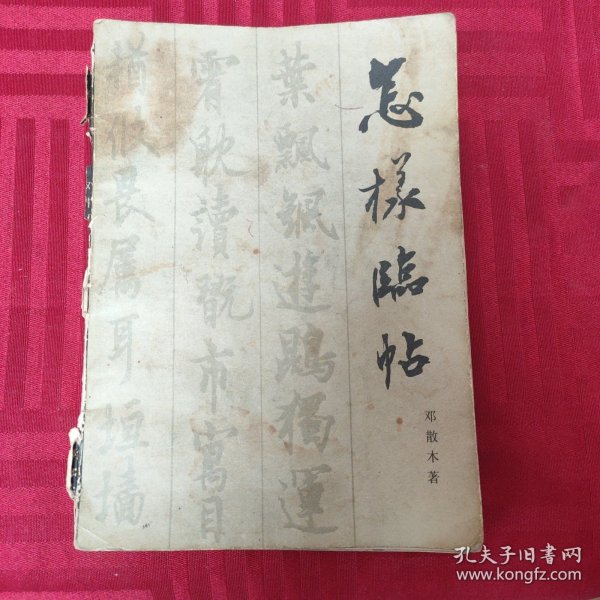 怎樣臨帖
邓散木著
葉飄飖遊鵾獨運
霄耽讀翫市寓目
箱攸畏屬耳垣墻
孔夫子旧书网
www.kongfz.com